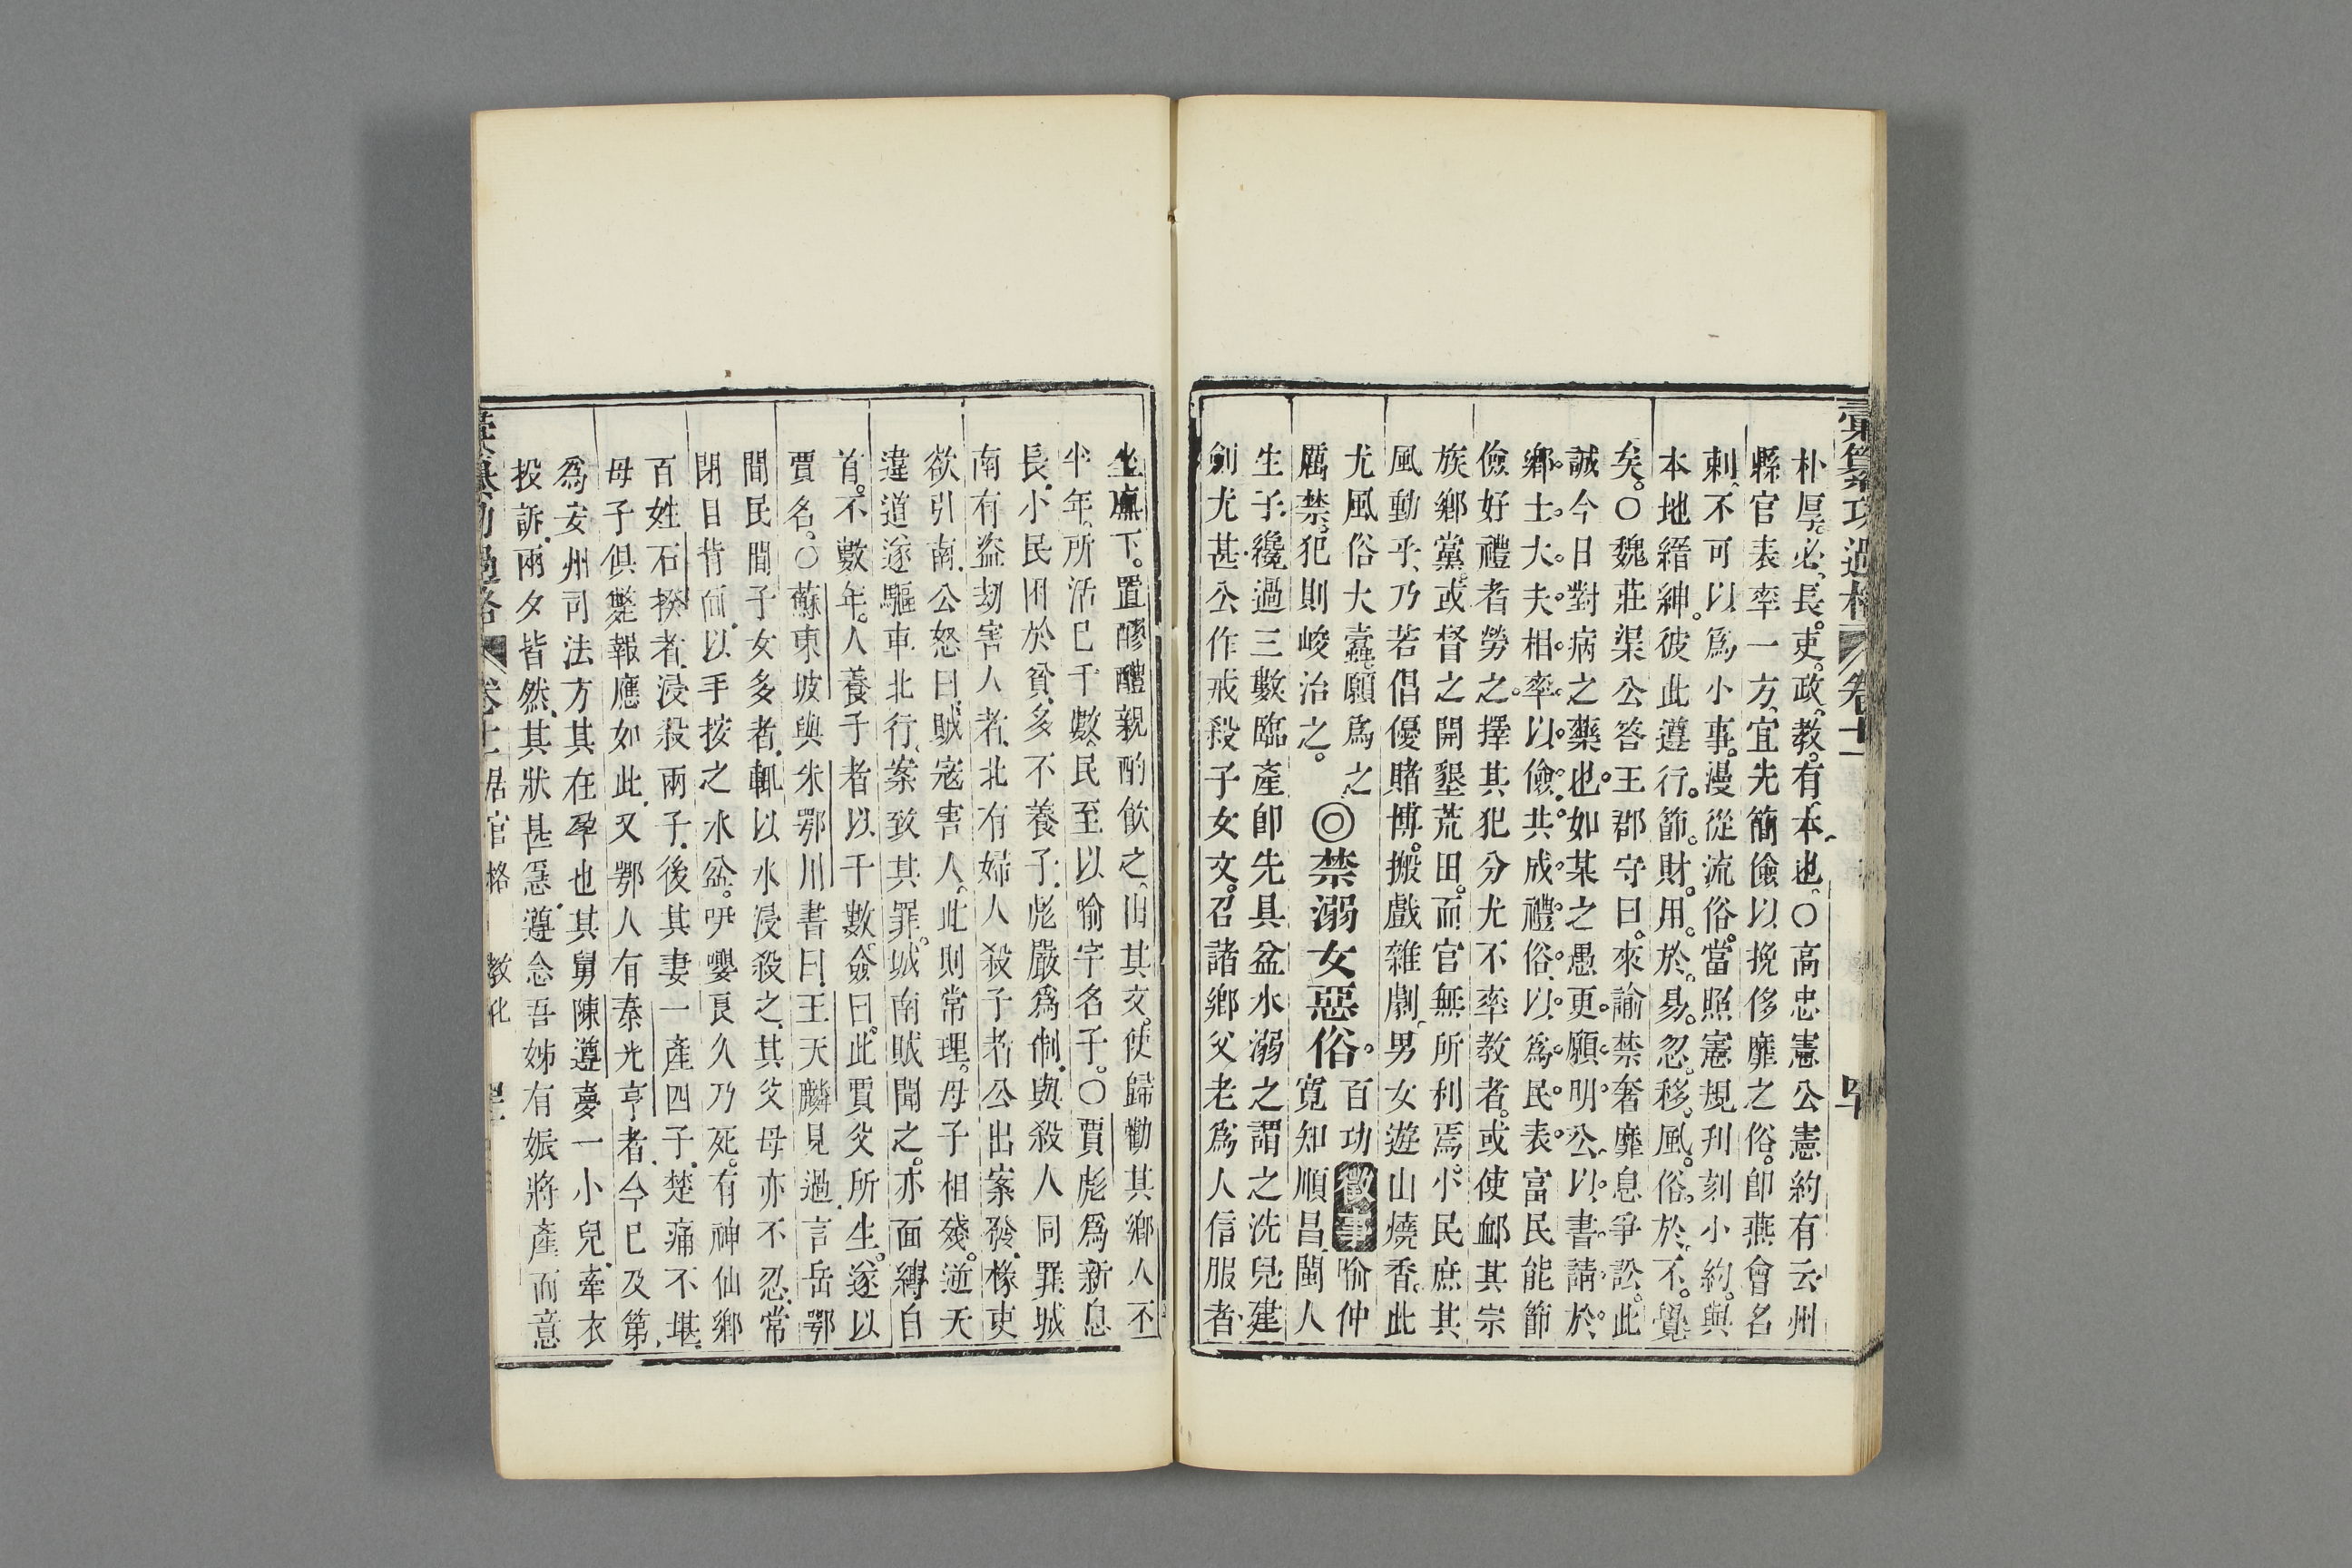 彙纂功過格 卷十一
朴厚。必長吏政教有本也。○高忠憲公憲約有云州
縣官表率一方、宜先簡儉以挽侈靡之俗。卽燕會名
刺、不可以爲小事。漫從流俗。當照憲規刋刻小約。與
本地縉紳。彼此遵行。節財用於易忽。移風俗於不覺
矣。○魏莊渠公答王郡守曰。來諭禁奢靡息爭訟。此
誠今日對病之藥也。如某之愚更願明公以書請於
鄉士大夫相率以儉。共成禮俗、以爲民表。富民能節
儉好禮者勞之。擇其犯分尤不率教者。或使邮其宗
族鄉黨。或督之開墾荒田。而官無所利焉。小民庶其
風動乎、乃若倡優賭博。搬戲雜劇、男女遊山燒香。此
尤風俗大蠹。願爲之
厲禁。犯則峻治之。
◎禁溺女惡俗。百功
徵事 喻仲
寬知順昌。閩人
生子纔過三數臨產卽先具盆水溺之謂之洗兒建
劍尤甚。公作戒殺子女文。召諸鄉父老爲人信服者
坐廡下。置醪醴親酌飲之。出其文。使歸勸其鄉人不
半年。所活已千數。民至以喻字名子。○賈彪爲新息
長。小民困於貧。多不養子。彪嚴爲制。與殺人同罪城
南有盜劫害人者。北有婦人殺子者公出案發。椽吏
欲引南。公怒曰。賊寇害人。此則常理。母子相殘。逆天
違道遂驅車北行。案致其罪。城南賊聞之。亦面縛自
首。不數年。人養子者以千數。僉曰。此賈父所生。遂以
賈名。○蘇東坡與朱鄂川書曰。王天麟見過。言岳鄂
間民間子女多者。輒以水浸殺之。其父母亦不忍。常
閉目背面。以手按之水盆。呼嚶良久乃死。有神仙鄉
百姓石揆者。浸殺兩子。後其妻一產四子。楚痛不堪。
母子俱斃報應如此。又鄂人有秦光亨者。今已及第
爲安州司法方其在孕也其舅陳遵夢一小兒。牽衣
投訴。兩夕皆然。其狀甚急。遵念吾姊有娠將產而意
居官格 教化